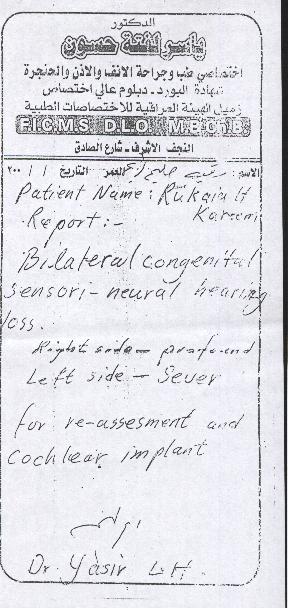 الدكتور
ياسر لفتة حسون
اختصاصي طب وجراحة الانف والاذن والحنجرة
شهادة البورد . دبلوم عالي اختصاص
زميل الهيئة العراقية للاختصاصات الطبية
F.I.C.M.S D.L.O M.B.Ch.B
النجف الاشرف - شارع الصادق
الاسم: العمر التاريخ / / ٢٠٠
Patient Name: Rukaia H
Kareem
Report:-
Bilateral congenital
sensori-neural hearing
loss.
Right side - profound
Left side - Sever
for re-assesment and
cochlear implant
Dr. Yasir L.H.